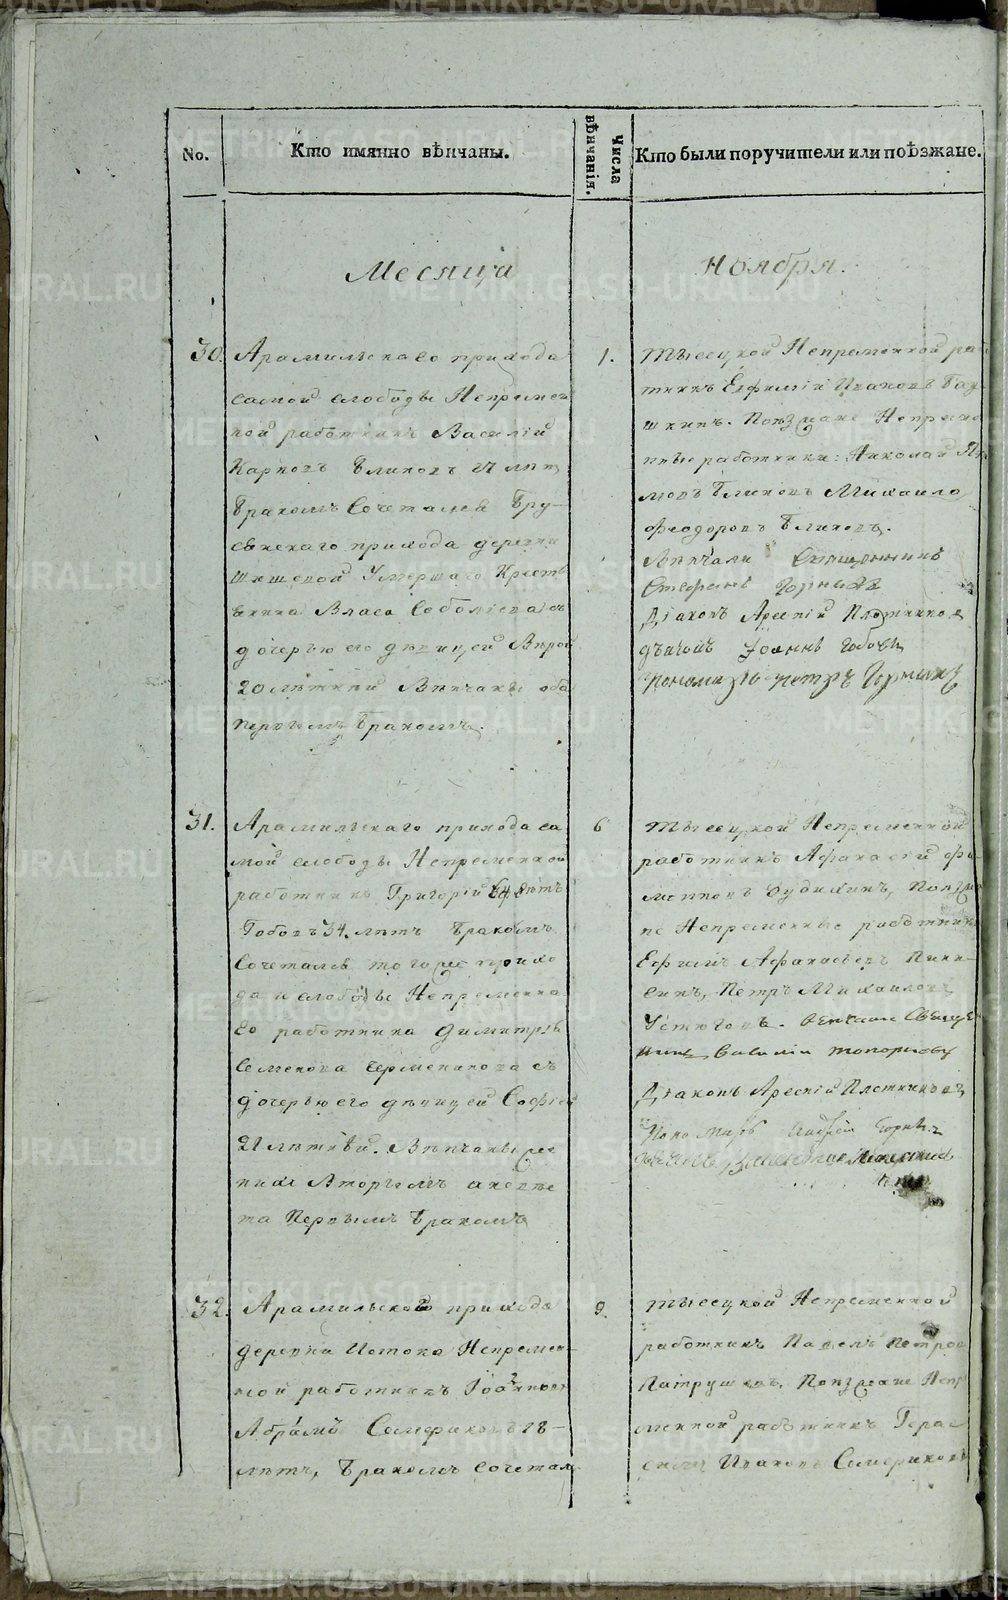 No.
Кто имянно вѣнчаны.
Числа вѣнчанія.
Кто были поручители или поѣзжане.
Месяца
Ноября.
30.
Арамильскаго прихода
самой слободы Непремен
ной работникъ Василій
Карповъ Блиновъ 21 летъ
бракомъ сочетался Бру-
сянскаго прихода деревни
Шишевой умершаго Кресть
янина Власа Соболева съ
дочерью его дѣвицей Вѣрой
20 лѣтней Вѣнчаны оба
первымъ бракомъ.
1.
Тысецкой Непременной ра
тникъ Ефимій Ивановъ
шкинъ. Поѣзжане Непреме
нные работники: Николай
Блиновъ Михаило
Феодоровъ Блиновъ.
Вѣнчали Священникъ
Стефанъ Горныхъ
Діаконъ Арсений Плотников
дьячокъ Иоаннъ
Пономарь Петръ Горныхъ
31.
Арамильскаго прихода са
мой слободы Непременной
работникъ Григорій
34. летъ бракомъ
сочетался того же прихо
да и слободы Непременна
го работника Димитрія
Семенова съ
дочерью его дѣвицей Софіей
21 летней. Вѣнчаны же
нихъ вторымъ а невѣс
та первымъ бракомъ
6
Тысецкой Непременной
работникъ Афанасій Фи
липповъ поѣзжа
не Непременные работники
Ефимъ Афанасьевъ
Петръ Михаиловъ
Устюговъ. Венчали Свяще
нникъ Василий Топорковъ
Діаконъ Арсений Плотниковъ
Пономарь Андрей Горныхъ
32.
Арамильской прихода
деревни Истока Непремен-
ной работникъ Іоанновъ
Абрамъ Семериковъ 18-
летъ, бракомъ сочетал
9
Тысецкой Непременной
работникъ Павелъ Петров
Патрушевъ. Поѣзжане Непре
менной работникъ Гера
симъ Ивановъ Семериковъ
METRIKI.GASO-URAL.RU